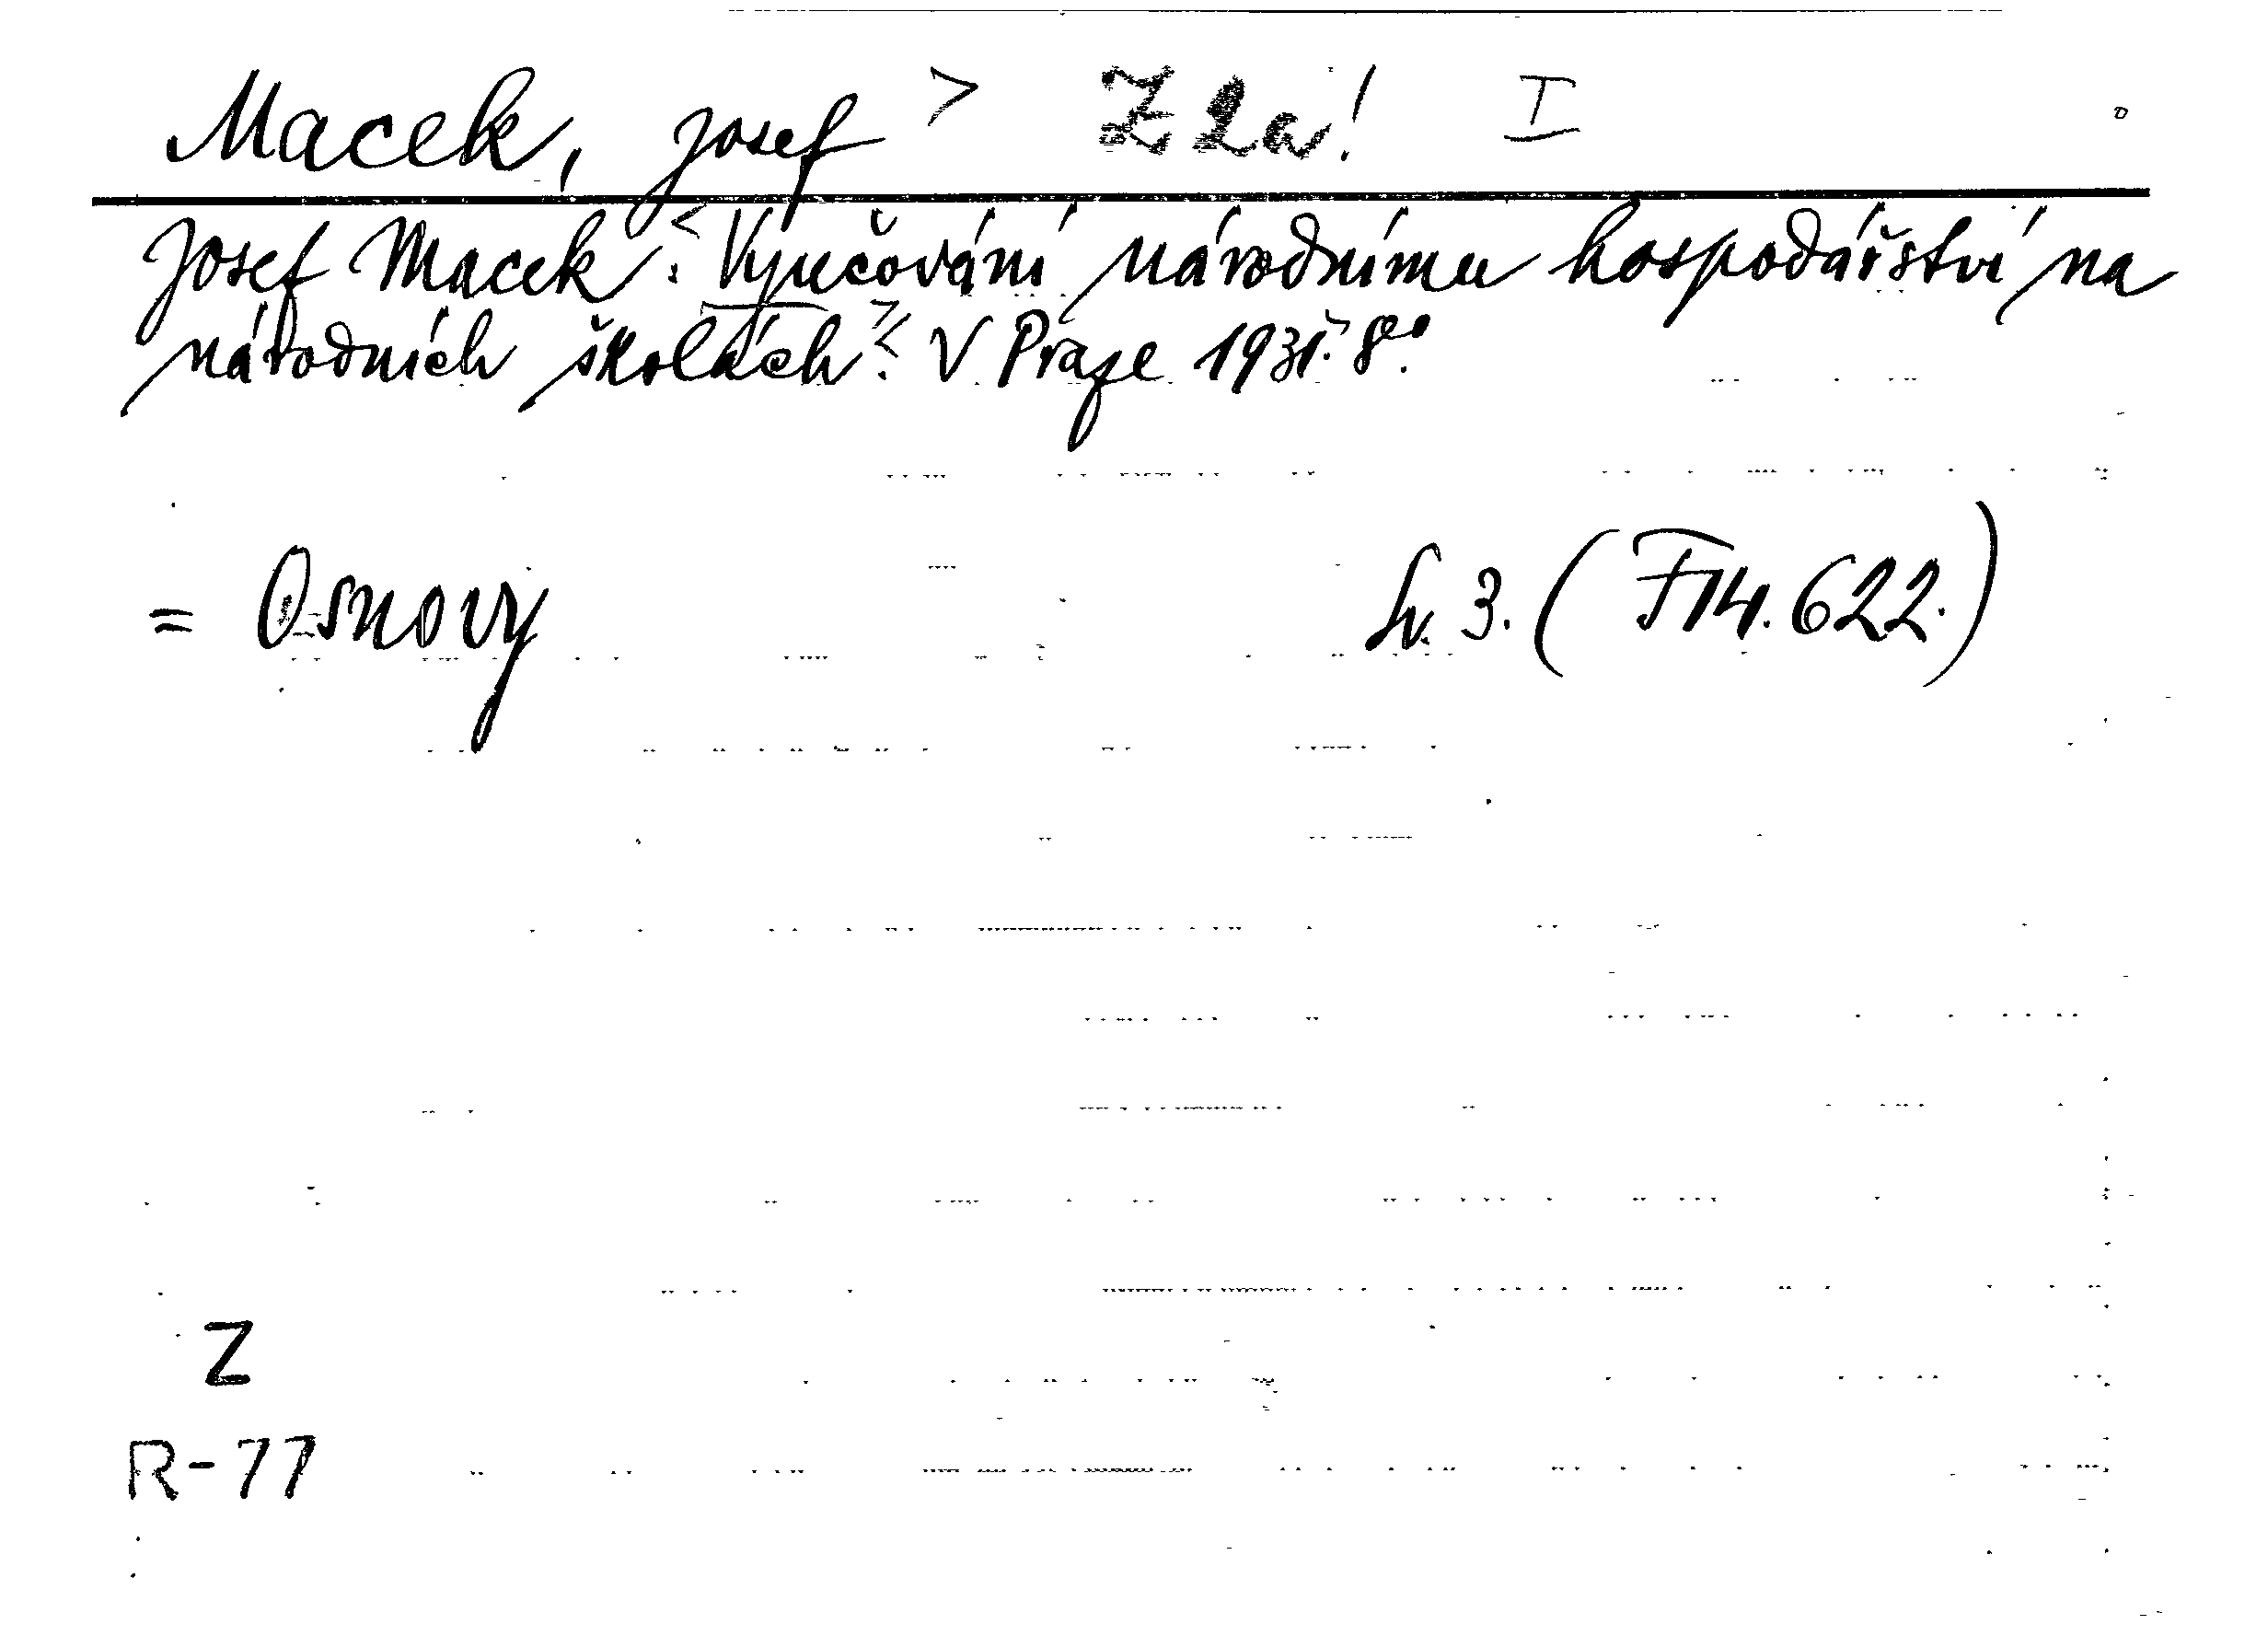 Macek, Josef > Z2a! I
Josef Macek: < Vyučování národnímu hospodářství na
národních školách > : < V Praze 1931. > 8°.
= Osnovy Sv. 3. (F 14.622.)
Z
R-77